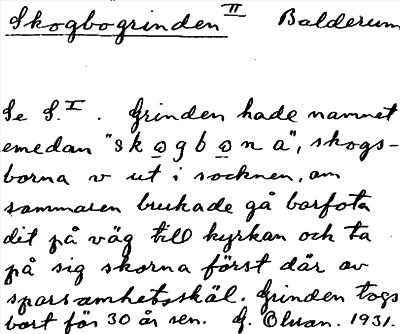 Skogbogrinden II Balderum
Se S. I. Grinden hade namnet
emedan "skogbona", skogs-
borna v ut i socknen, om
sommaren brukade gå barfota
dit på väg till kyrkan och ta
på sig skorna först där av
sparsamhetsskäl. Grinden togs
bort för 30 år sen. G. Olsson. 1931.